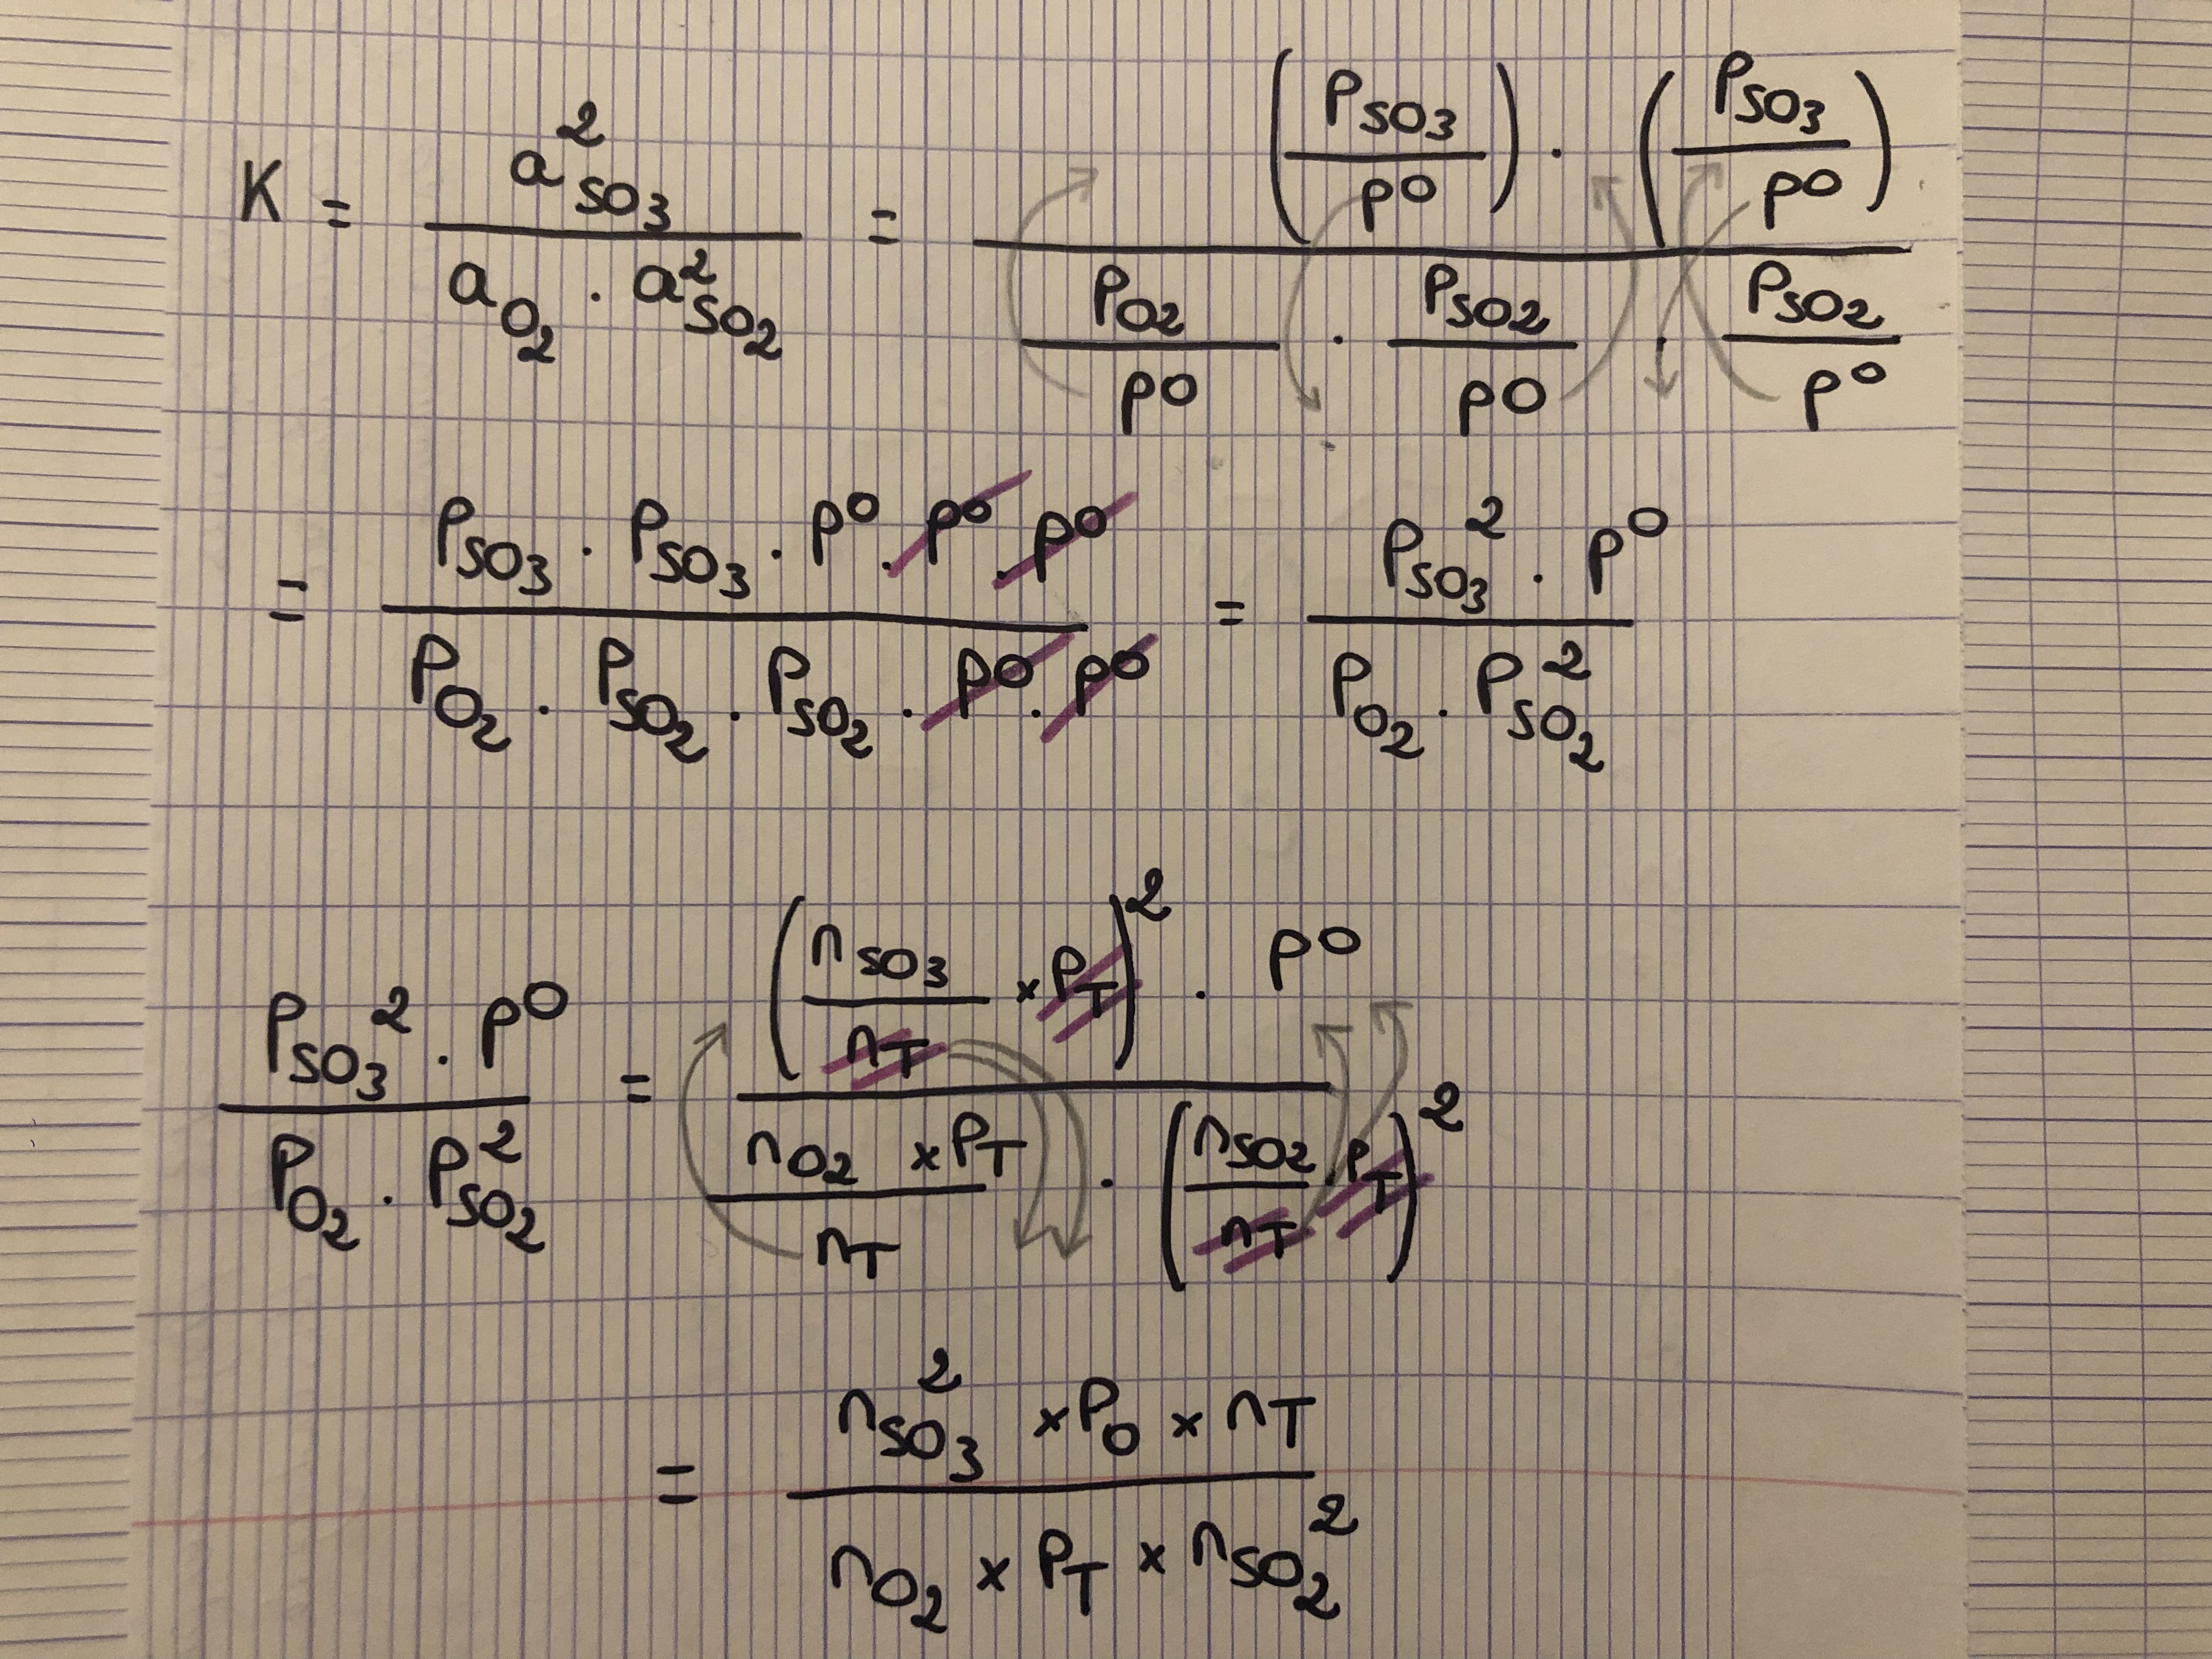 K = a²SO₃ / (aO₂ . a²SO₂) = (PSO₃/P⁰) . (PSO₃/P⁰) / (PO₂/P⁰ . PSO₂/P⁰ . PSO₂/P⁰)
= (PSO₃ . PSO₃ . P⁰ . P⁰ . P⁰) / (PO₂ . PSO₂ . PSO₂ . P⁰ . P⁰) = (PSO₃² . P⁰) / (PO₂ . PSO₂²)
(PSO₃² . P⁰) / (PO₂ . PSO₂²) = ((nSO₃/nT × PT)² . P⁰) / ((nO₂ × PT)/nT . (nSO₂/nT . PT)²)
= (nSO₃² × P₀ × nT) / (nO₂ × PT × nSO₂²)